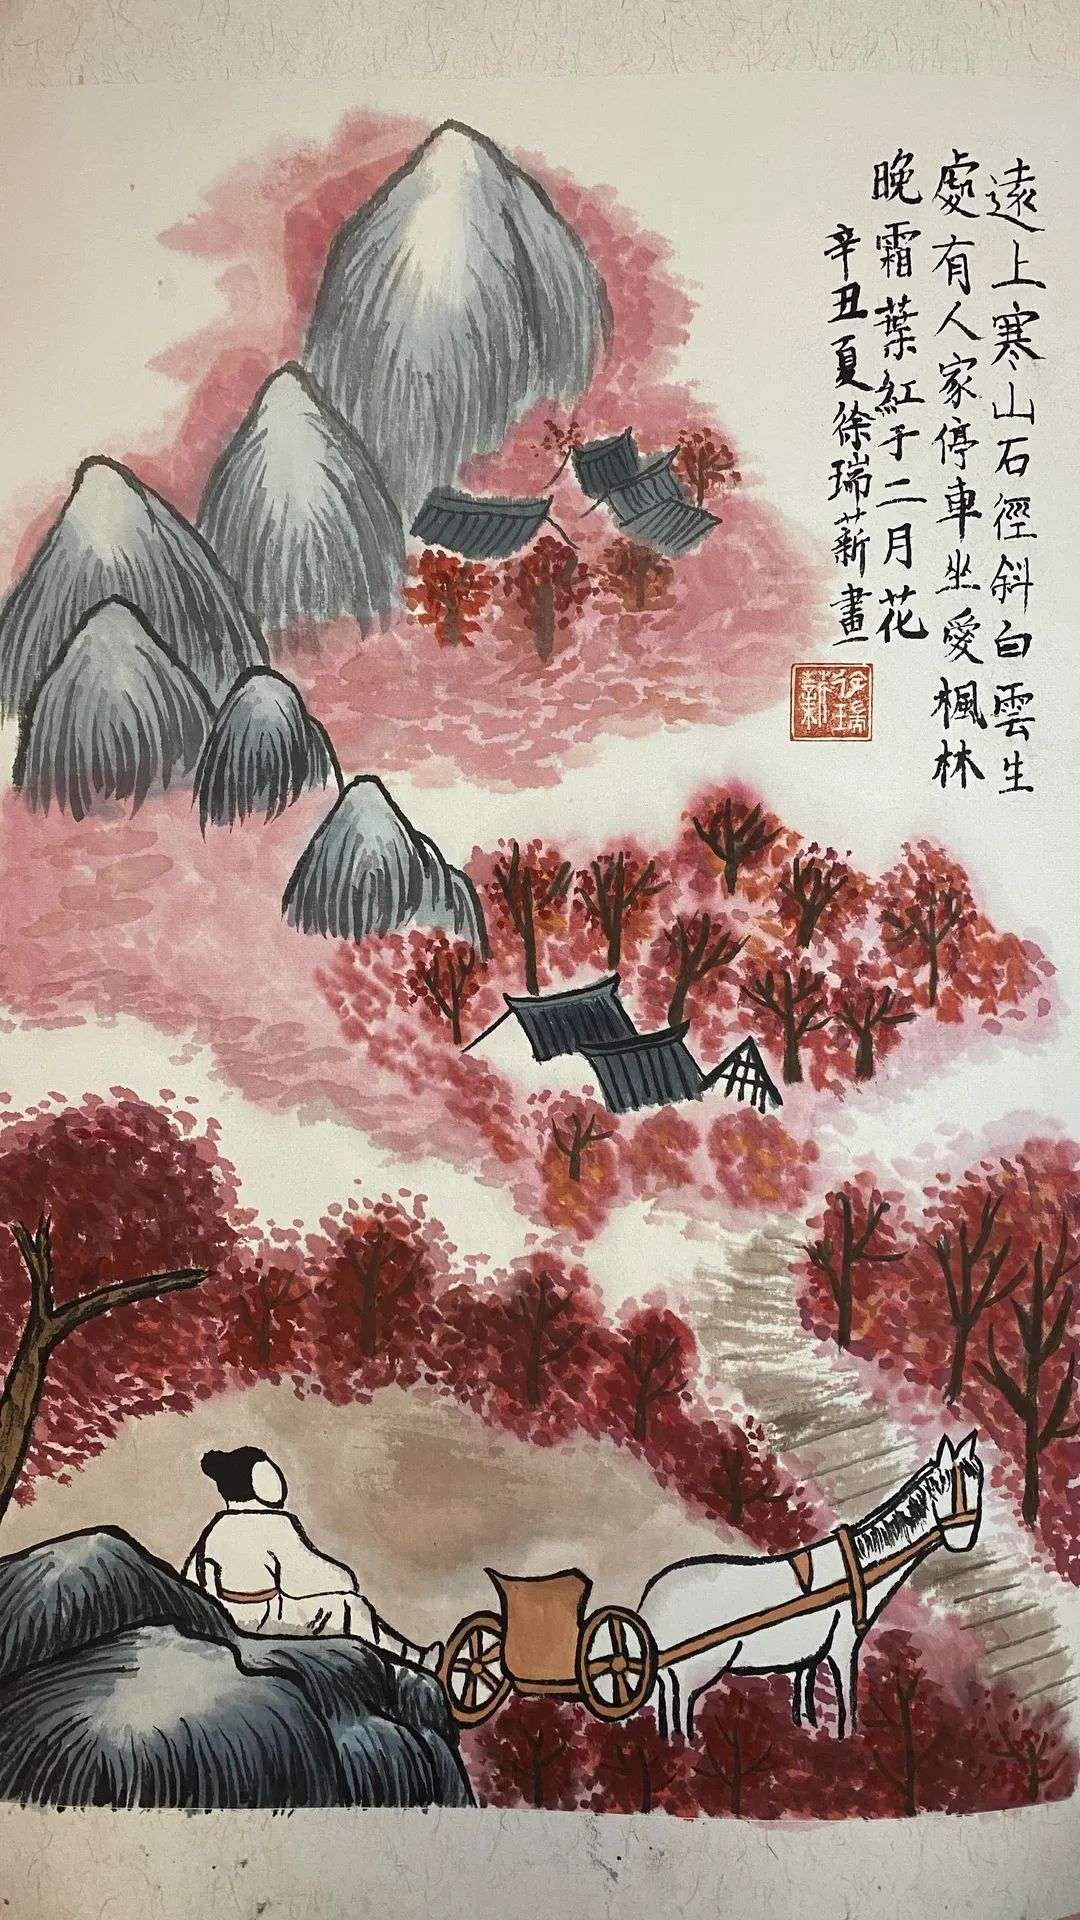 遠上寒山石徑斜白雲生
處有人家停車坐愛楓林
晚霜葉紅于二月花
辛丑夏徐瑞薪畫
徐瑞
薪